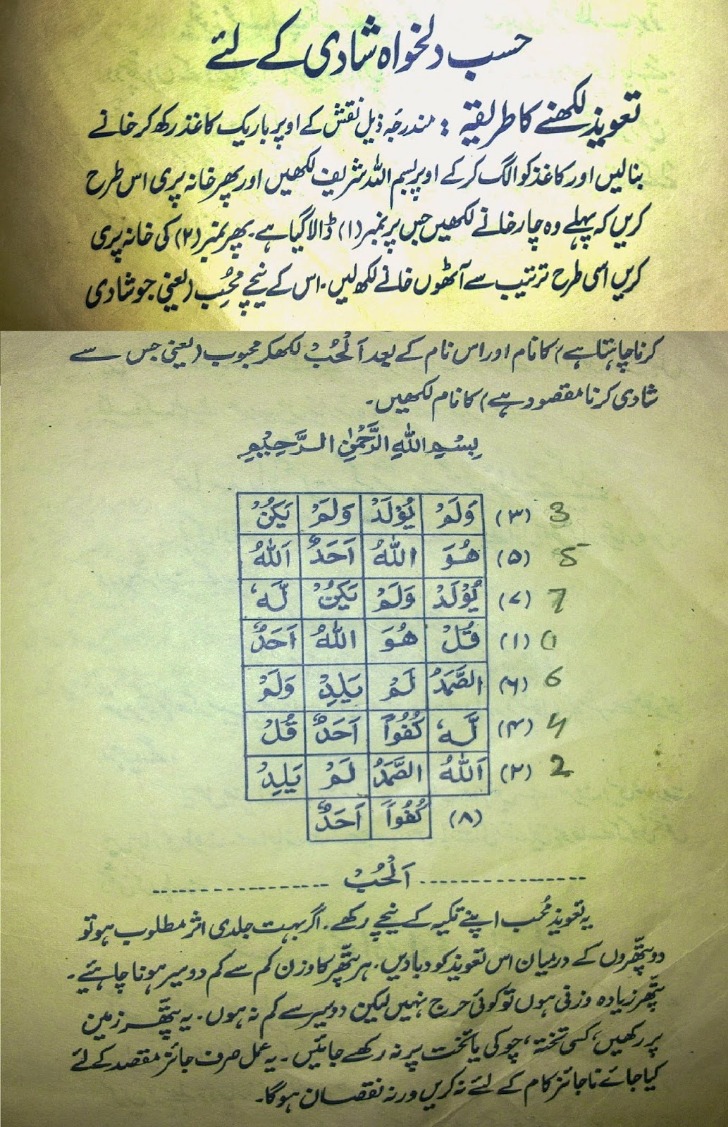 حسب دلخواہ شادی کے لئے
تعویذ لکھنے کا طریقہ : مندرجہ ذیل نقش کے اوپر باریک کاغذ رکھ کر خانے
بنالیں اور کاغذ کو الگ کر کے اوپر بسم اللہ شریف لکھیں اور پھر خانہ پری اس طرح
کریں کہ پہلے وہ چار خانے لکھیں جس پر نمبر (۱) ڈالا گیا ہے۔ پھر نمبر (۲) کی خانہ پری
کریں اسی طرح ترتیب سے آٹھوں خانے لکھ لیں۔ اس کے نیچے مُحِب (یعنی جو شادی
کرنا چاہتا ہے) کا نام اور اس نام کے بعد اَلْحُبْ لکھکر محبوب (یعنی جس سے
شادی کرنا مقصود ہے) کا نام لکھیں۔
بِسْمِ اللهِ الرَّحْمٰنِ الرَّحِيْمِ
وَلَمْ يُوْلَدْ وَلَمْ يَكُنْ (۳) 3
هُوَ اللهُ اَحَدٌ اَللهُ (۵) 5
يُوْلَدْ وَلَمْ يَكُنْ لَّهٗ (۷) 7
قُلْ هُوَ اللهُ اَحَدٌ (۱) 0
الصَّمَدُ لَمْ يَلِدْ وَلَمْ (۶) 6
لَّهٗ كُفُوًا اَحَدٌ قُلْ (۴) 4
اَللهُ الصَّمَدُ لَمْ يَلِدْ (۲) 2
كُفُوًا اَحَدٌ (۸)
اَلْحُبْ
یہ تعویذ مُحب اپنے تکیہ کے نیچے رکھے۔ اگر بہت جلدی اثر مطلوب ہو تو
دو پتھّروں کے درمیان اس تعویذ کو دبا دیں۔ ہر پتھّر کا وزن کم سے کم دو سیر ہونا چاہئیے۔
پتھّر زیادہ وزنی ہوں تو کوئی حرج نہیں لیکن دو سیر سے کم نہ ہوں۔ یہ پتھّر زمین
پر رکھیں، کسی تختہ، چوکی یا تخت پر نہ رکھے جائیں۔ یہ عمل صرف جائز مقصد کے لئے
کیا جائے ناجائز کام کے لئے نہ کریں ورنہ نقصان ہوگا۔